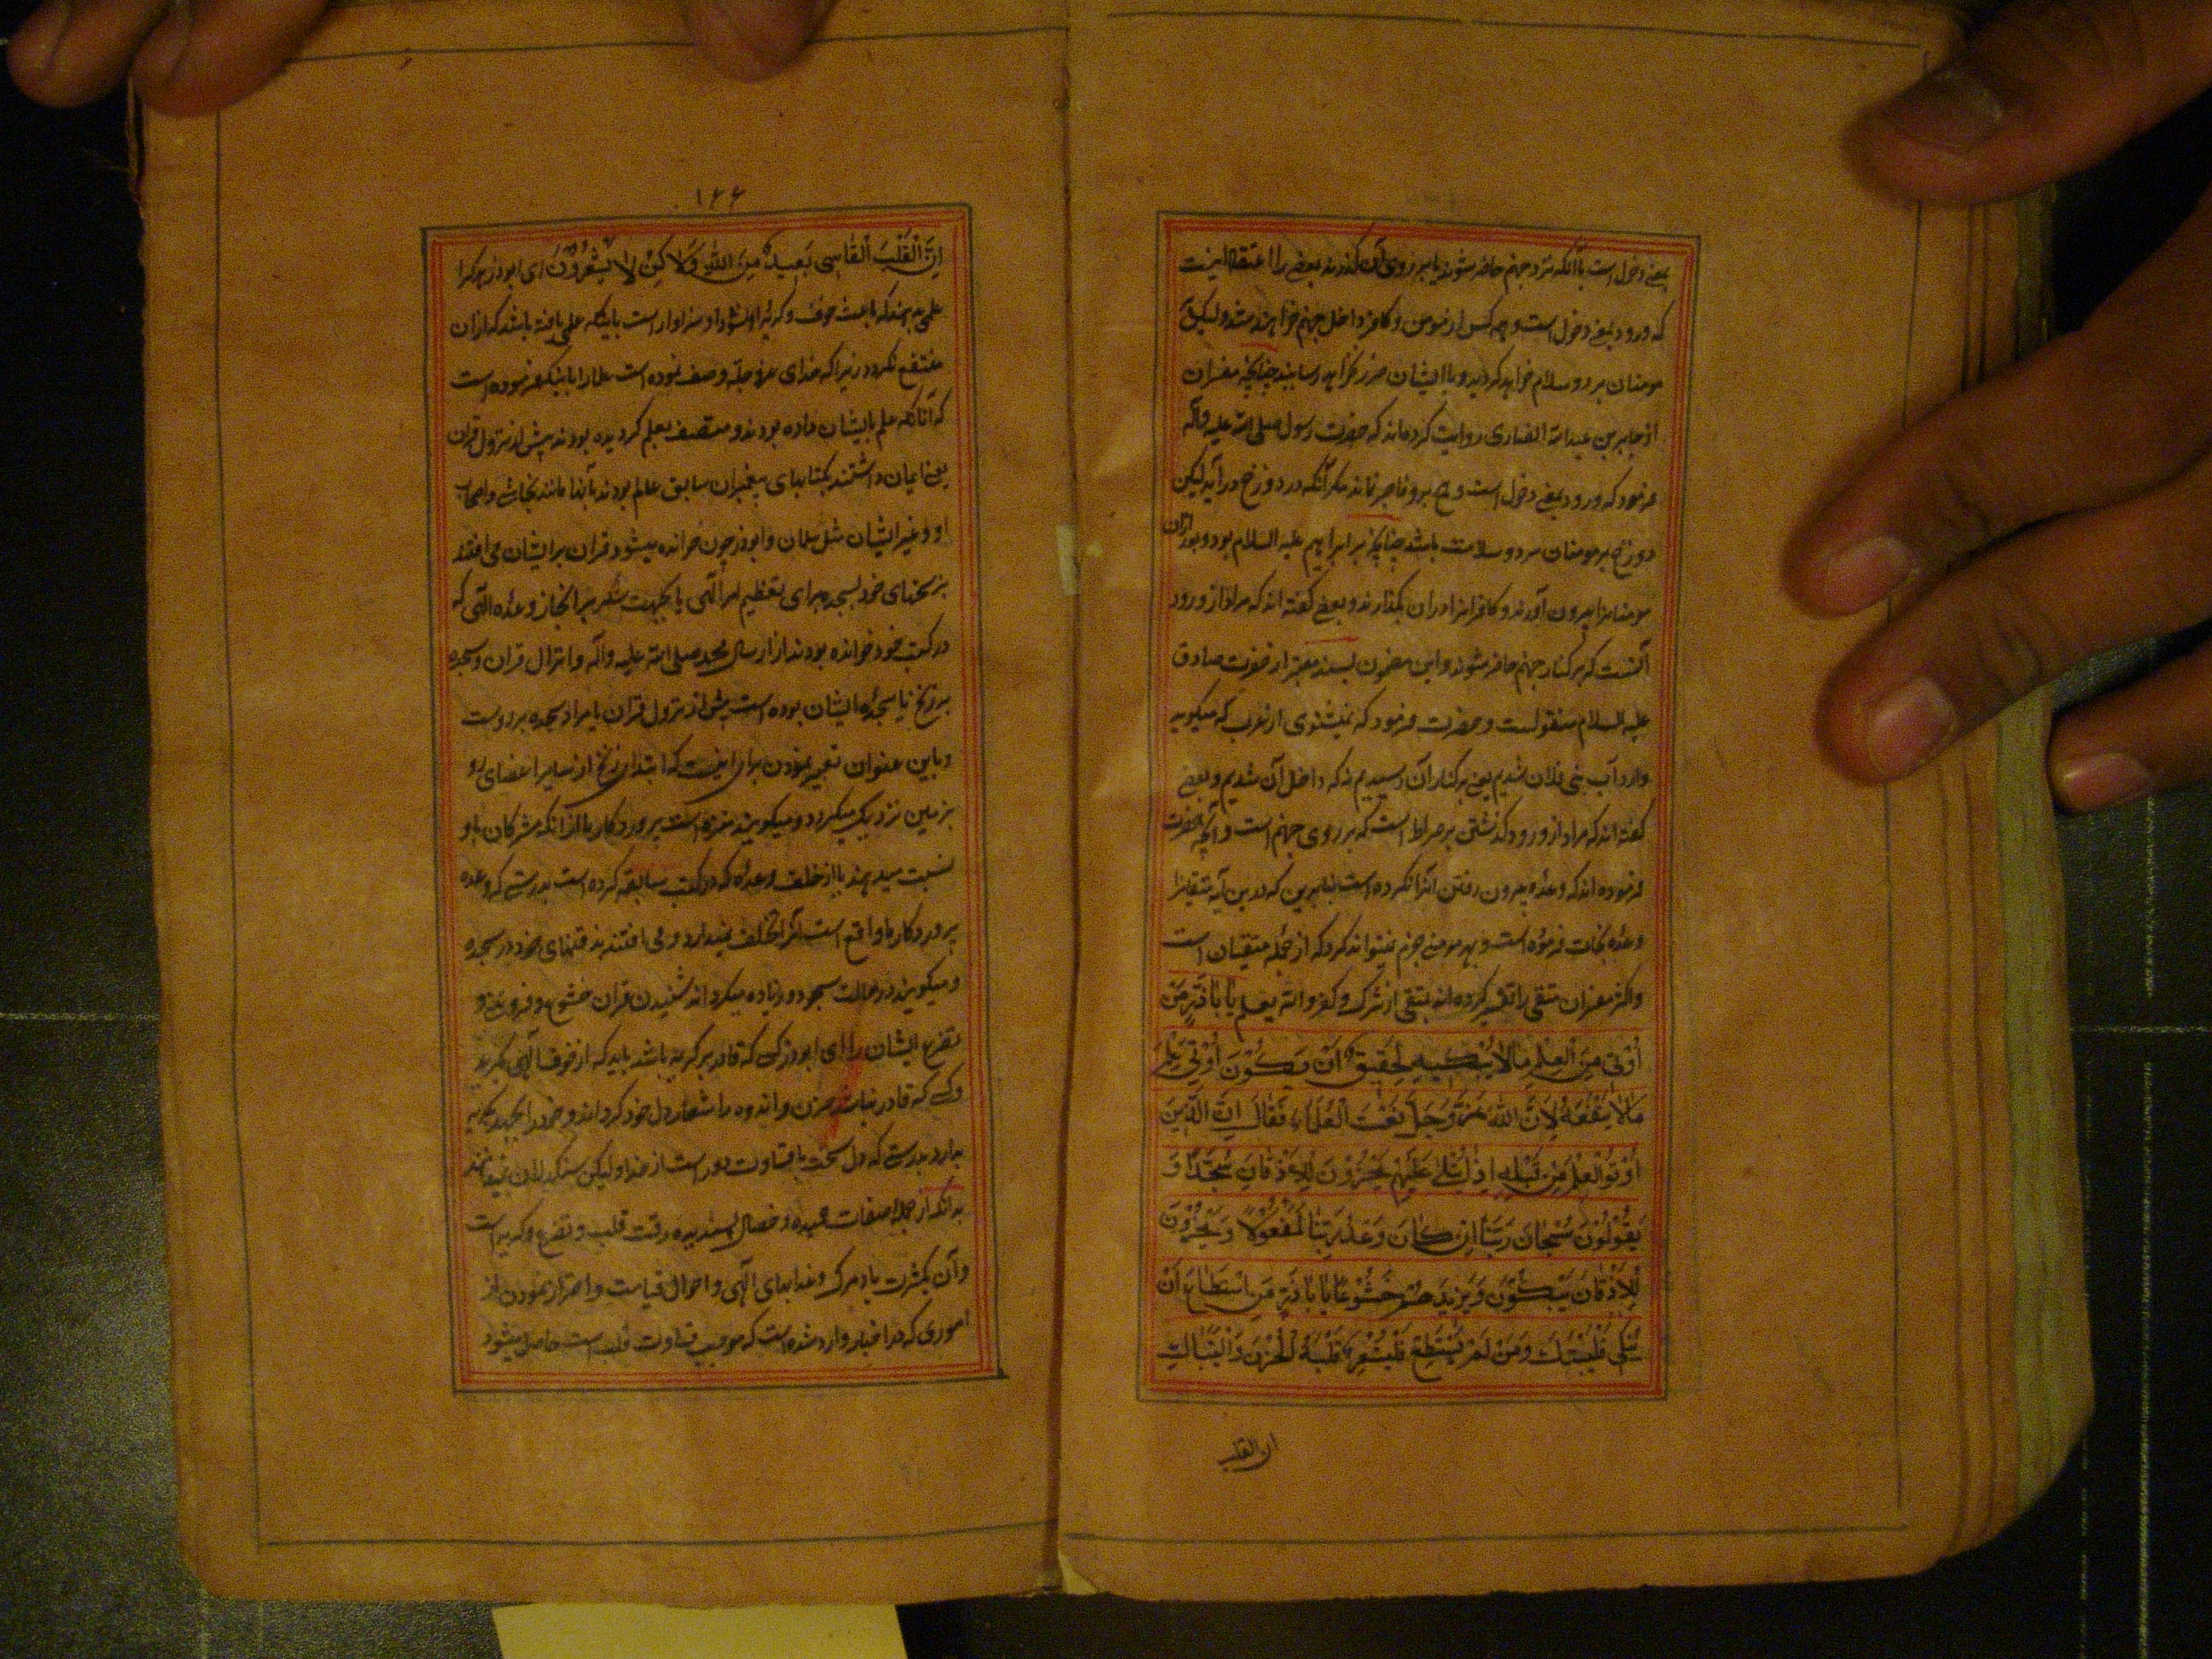 بمعنی دخول است یا آنکه نزد جهنم حاضر شوند یا بر روی آن گذرند بعضی را اعتقاد اینست
که ورود بمعنی دخول است و همه کس از مومن و کافر داخل جهنم خواهند شد و لیکن
مومنان برد و سلام خواهد گردید و با ایشان ضرر نخواهد رسانید چنانچه مفسران
از جابر بن عبدالله انصاری روایت کرده‌اند که حضرت رسول صلی الله علیه و آله
فرمود که ورود بمعنی دخول است و هیچ بر و فاجر نماند مگر آنکه در دوزخ درآید لیکن
دوزخ بر مومنان سرد و سلامت باشد چنانچه بر ابراهیم علیه السلام بود و بعد ازان
مومنانرا بیرون آورند و کافرانرا دران بگذارند و بعضی گفته اند که مراد از ورود
آنست که بر کنار جهنم حاضر شوند و این مضمون بسند معتبر از حضرت صادق
علیه السلام منقولست و حضرت فرمود که نمیشنوی از عرب که میگوید
وارد آب بنی فلان شدیم یعنی به کنار آن رسیدیم نه که داخل آن شدیم و بعضی
گفته اند که مراد از ورود گذشتن بر صراط است که بر روی جهنم است و آنچه حضرت
فرموده اند که وعده بیرون رفتن آنرا نکرده است بنابرین که در این آیه متقیانرا
وعده نجات فرموده است و هر مومنی جزم نمیتواند کرد که از جمله متقیان است
و اکثر مفسران متقی را تفسیر کرده اند بمتقی از شرک و کفر و الله یعلم یَا بَاذَرٍّ مَنْ
أُوتِيَ مِنَ الْعِلْمِ مَالَا يُبْكِيهِ لَحَقِيقٌ أَنْ يَكُونَ أُوتِيَ عِلْمَ
مَالَا يَنْفَعُهُ لِأَنَّ اللهَ عَزَّ وَجَلَّ نَعَتَ الْعُلَمَاءَ فَقَالَ إِنَّ الَّذِينَ
أُوتُوا الْعِلْمَ مِنْ قَبْلِهِ إِذَا يُتْلَى عَلَيْهِمْ يَخِرُّونَ لِلْأَذْقَانِ سُجَّدًا وَ
يَقُولُونَ سُبْحَانَ رَبِّنَا إِنْ كَانَ وَعْدُ رَبِّنَا لَمَفْعُولًا وَيَخِرُّونَ
لِلْأَذْقَانِ يَبْكُونَ وَيَزِيدُهُمْ خُشُوعًا يَا بَاذَرٍّ مَنِ اسْتَطَاعَ أَنْ
يَبْكِيَ فَلْيَبْكِ وَمَنْ لَمْ يَسْتَطِعْ فَلْيُشْعِرْ قَلْبَهُ الْحُزْنَ وَلْيَتَبَاكِ
ان القلب
۱۶۶
إِنَّ الْقَلْبَ الْقَاسِي بَعِيدٌ مِنَ اللهِ وَلَاكِنْ لَا يَشْعُرُونَ ای ابوذر هر کرا
علمی بدهند که باعث خوف و گریه او نشود او سزاوار است باینکه علمی یافته باشد که ازان
منتفع نگردد زیرا که خدای عز و جل وصف نموده است علما را باینکه فرموده است
که آنانکه علم بایشان داده بودند و متصف بعلم گردیده بودند پیش از نزول قران
یعنی ایمان داشتند بکتابهای پیغمبران سابق و عالم بودند بآنها مانند نجاشی و اصحاب
او و غیر ایشان مثل سلمان و ابوذر چون خوانده میشود قران بر ایشان می افتند
بزنخهای خود بسجده برای تعظیم امر الهی یا بجهت شکر بر انجاز وعده الهی که
در کتب خود خوانده بودند از ارسال محمد صلی الله علیه و آله و انزال قران و سجده
بر زنخ یا سجده ایشان بوده است پیش از نزول قران یا مراد سجده بر روست
و باین عنوان تعبیر نمودن برای اینست که ابتدای زنخ از سایر اعضای رو
بزمین نزدیک میگردد و میگویند منزه است پروردگار ما از آنکه مشرکان باو
نسبت میدهند یا از خلف وعده که در کتب سابقه کرده است بدرستی که وعده
پروردگار ما واقع است آنرا تخلف نمیدارد و می افتند بذقنهای خود در سجده
و میگریند در حالت سجود و زیاده میگرداند شنیدن قران خشوع و فروتنی و
تضرع ایشان را ای ابوذر کسی که قادر بر گریه باشد باید که از خوف الهی بگرید
و کسی که قادر نباشد حزن و اندوه را شعار دل خود گرداند و خود را بجهد بگریه
بدارد بدرستی که دل سخت با قساوت دور است از خدا و لیکن سنگدلان نمیفهمند
بدانکه از جمله صفات حمیده و خصال پسندیده رقت قلب و تضرع و گریه است
و آن بکثرت یاد مرگ و عذابهای الهی و احوال قیامت و احتراز نمودن از
اموری که در اخبار وارد شده است که موجب قساوت قلب است حاصل میشود